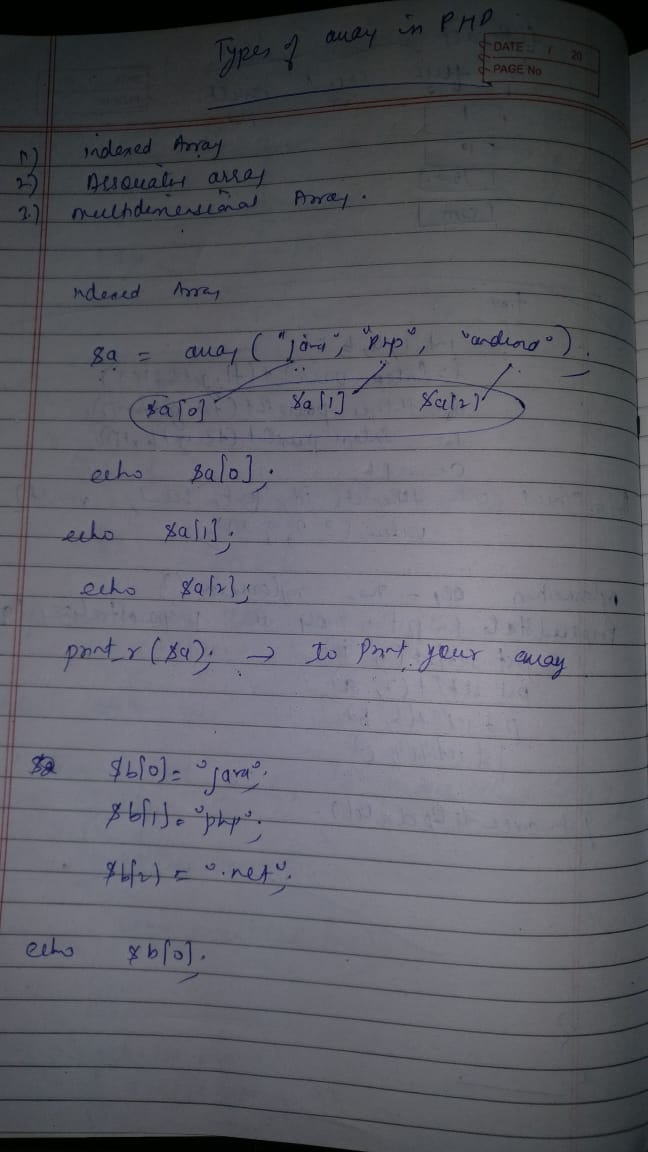 Types of array in PHP
DATE / 20
PAGE No
1) indexed Array
2) Associative array
3.) multidimensional Array.
ndexed Array
$a = array ("java", "php", "android");
$a[0] $a[1] $a[2]
echo $a[0];
echo $a[1];
echo $a[2];
print_r($a); → to print your array
$b[0] = "java";
$b[1] = "php";
$b[2] = ".net";
echo $b[0];